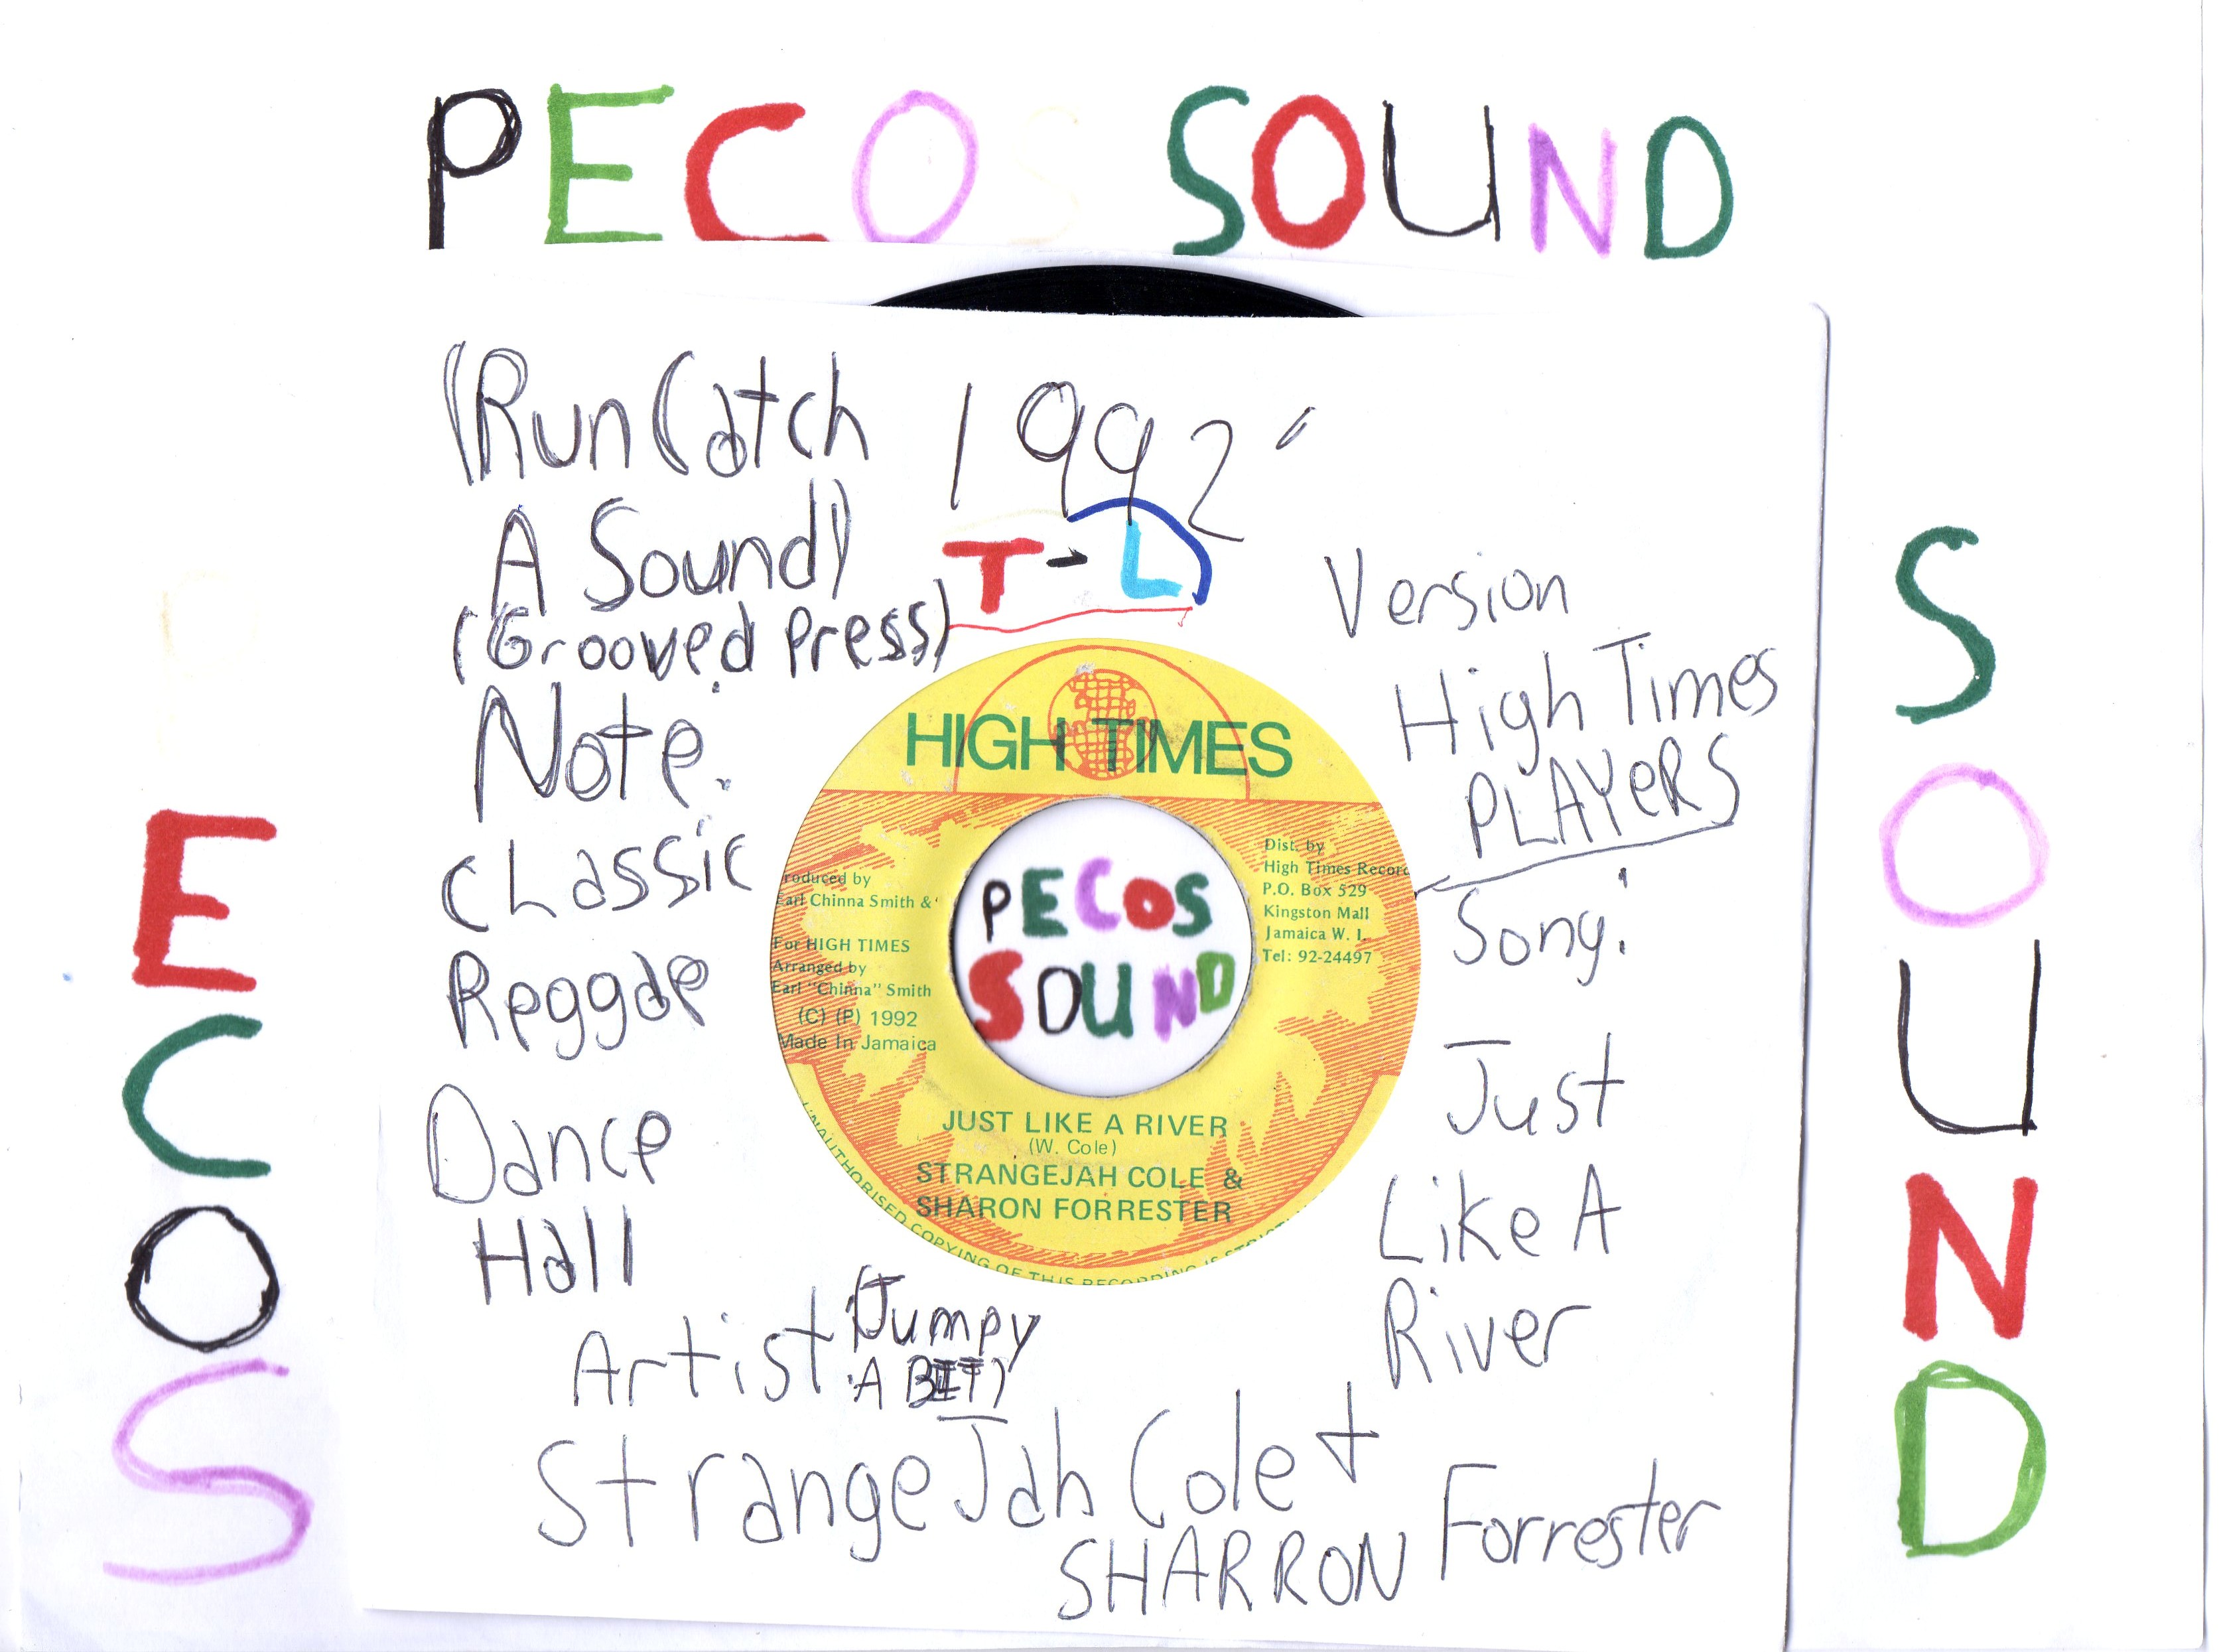 PECOS SOUND
(Run Catch
A Sound)
(Grooved Press)
Note:
cLassic
Reggae
Dance
Hall
1992
T-L
Version
High Times
PLAYeRS
Song:
Just
Like A
River
Artist:
(Jumpy
A BIT)
Strange Jah Cole +
SHARRON Forrester
HIGH TIMES
roduced by
Earl Chinna Smith &
For HIGH TIMES
Arranged by
Earl "Chinna" Smith
(C) (P) 1992
Made In Jamaica
PECOS
SOUND
Dist. by
High Times Record
P.O. Box 529
Kingston Mall
Jamaica W. I.
Tel: 92-24497
JUST LIKE A RIVER
(W. Cole)
STRANGEJAH COLE &
SHARON FORRESTER
UNAUTHORISED COPYING OF THIS RECORDING IS
PECOS
SOUND